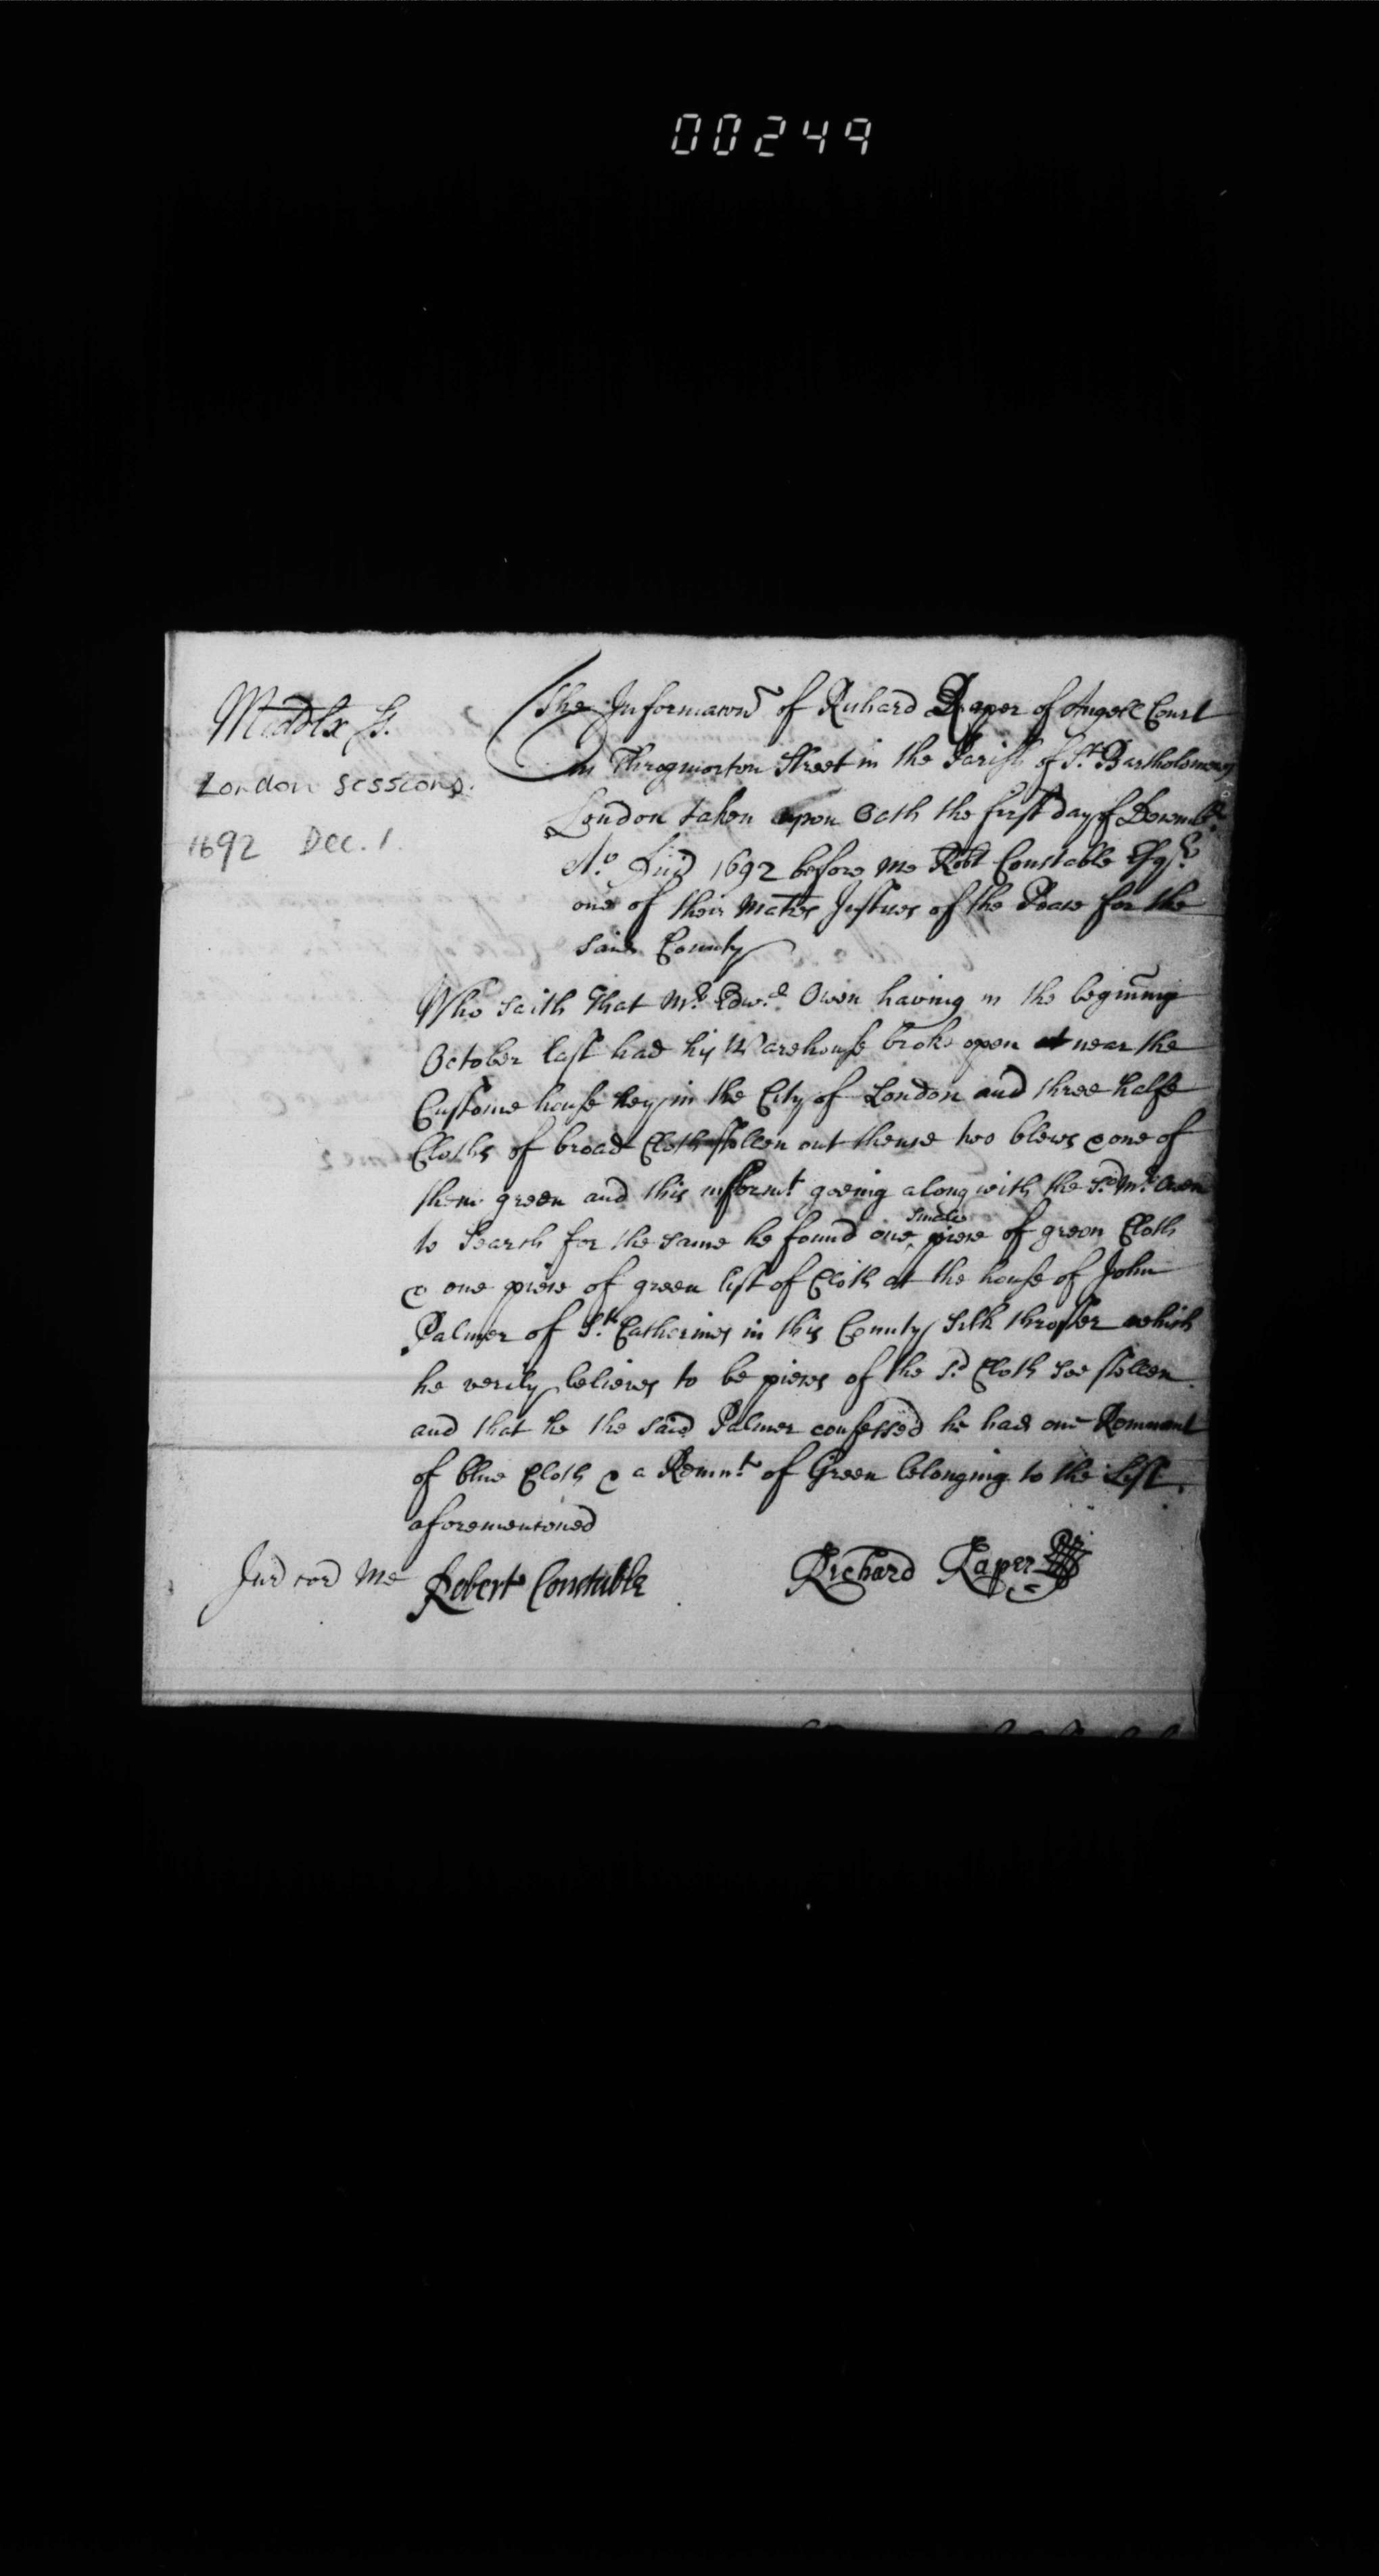 00249
Middlx ss.
London Sessions.
1692 Dec. 1.
The Informacon of Richard Draper of Angell Court
in Throgmorton Street in the Parish of St. Bartholomews
London taken upon Oath the first day of Decembr.
Ao. Dnid 1692 before me Robt Constable Esqr.
one of their Maties Justices of the Peace for the
said County
Who saith That Mr. Edwd. Owen having in the beginning
October last had his Warehouse broke open at near the
Custome house Key in the City of London and three halfe
Cloths of broad Cloth stollen out thence two blews & one of
them green and this informt. goeing along with the sd. Mr. Owen
to Search for the same he found one smale piece of green Cloth
& one piece of green list of Cloth at the house of John
Palmer of St. Catherines in this County Silk throster which
he verily believes to be pieces of the sd. Cloth soe stollen
and that he the said Palmer confessed he had one Remnant
of blue Cloth & a Remnt. of Green belonging to the List
aforementoned
Jur cor Me Robert Constable Richard Raper